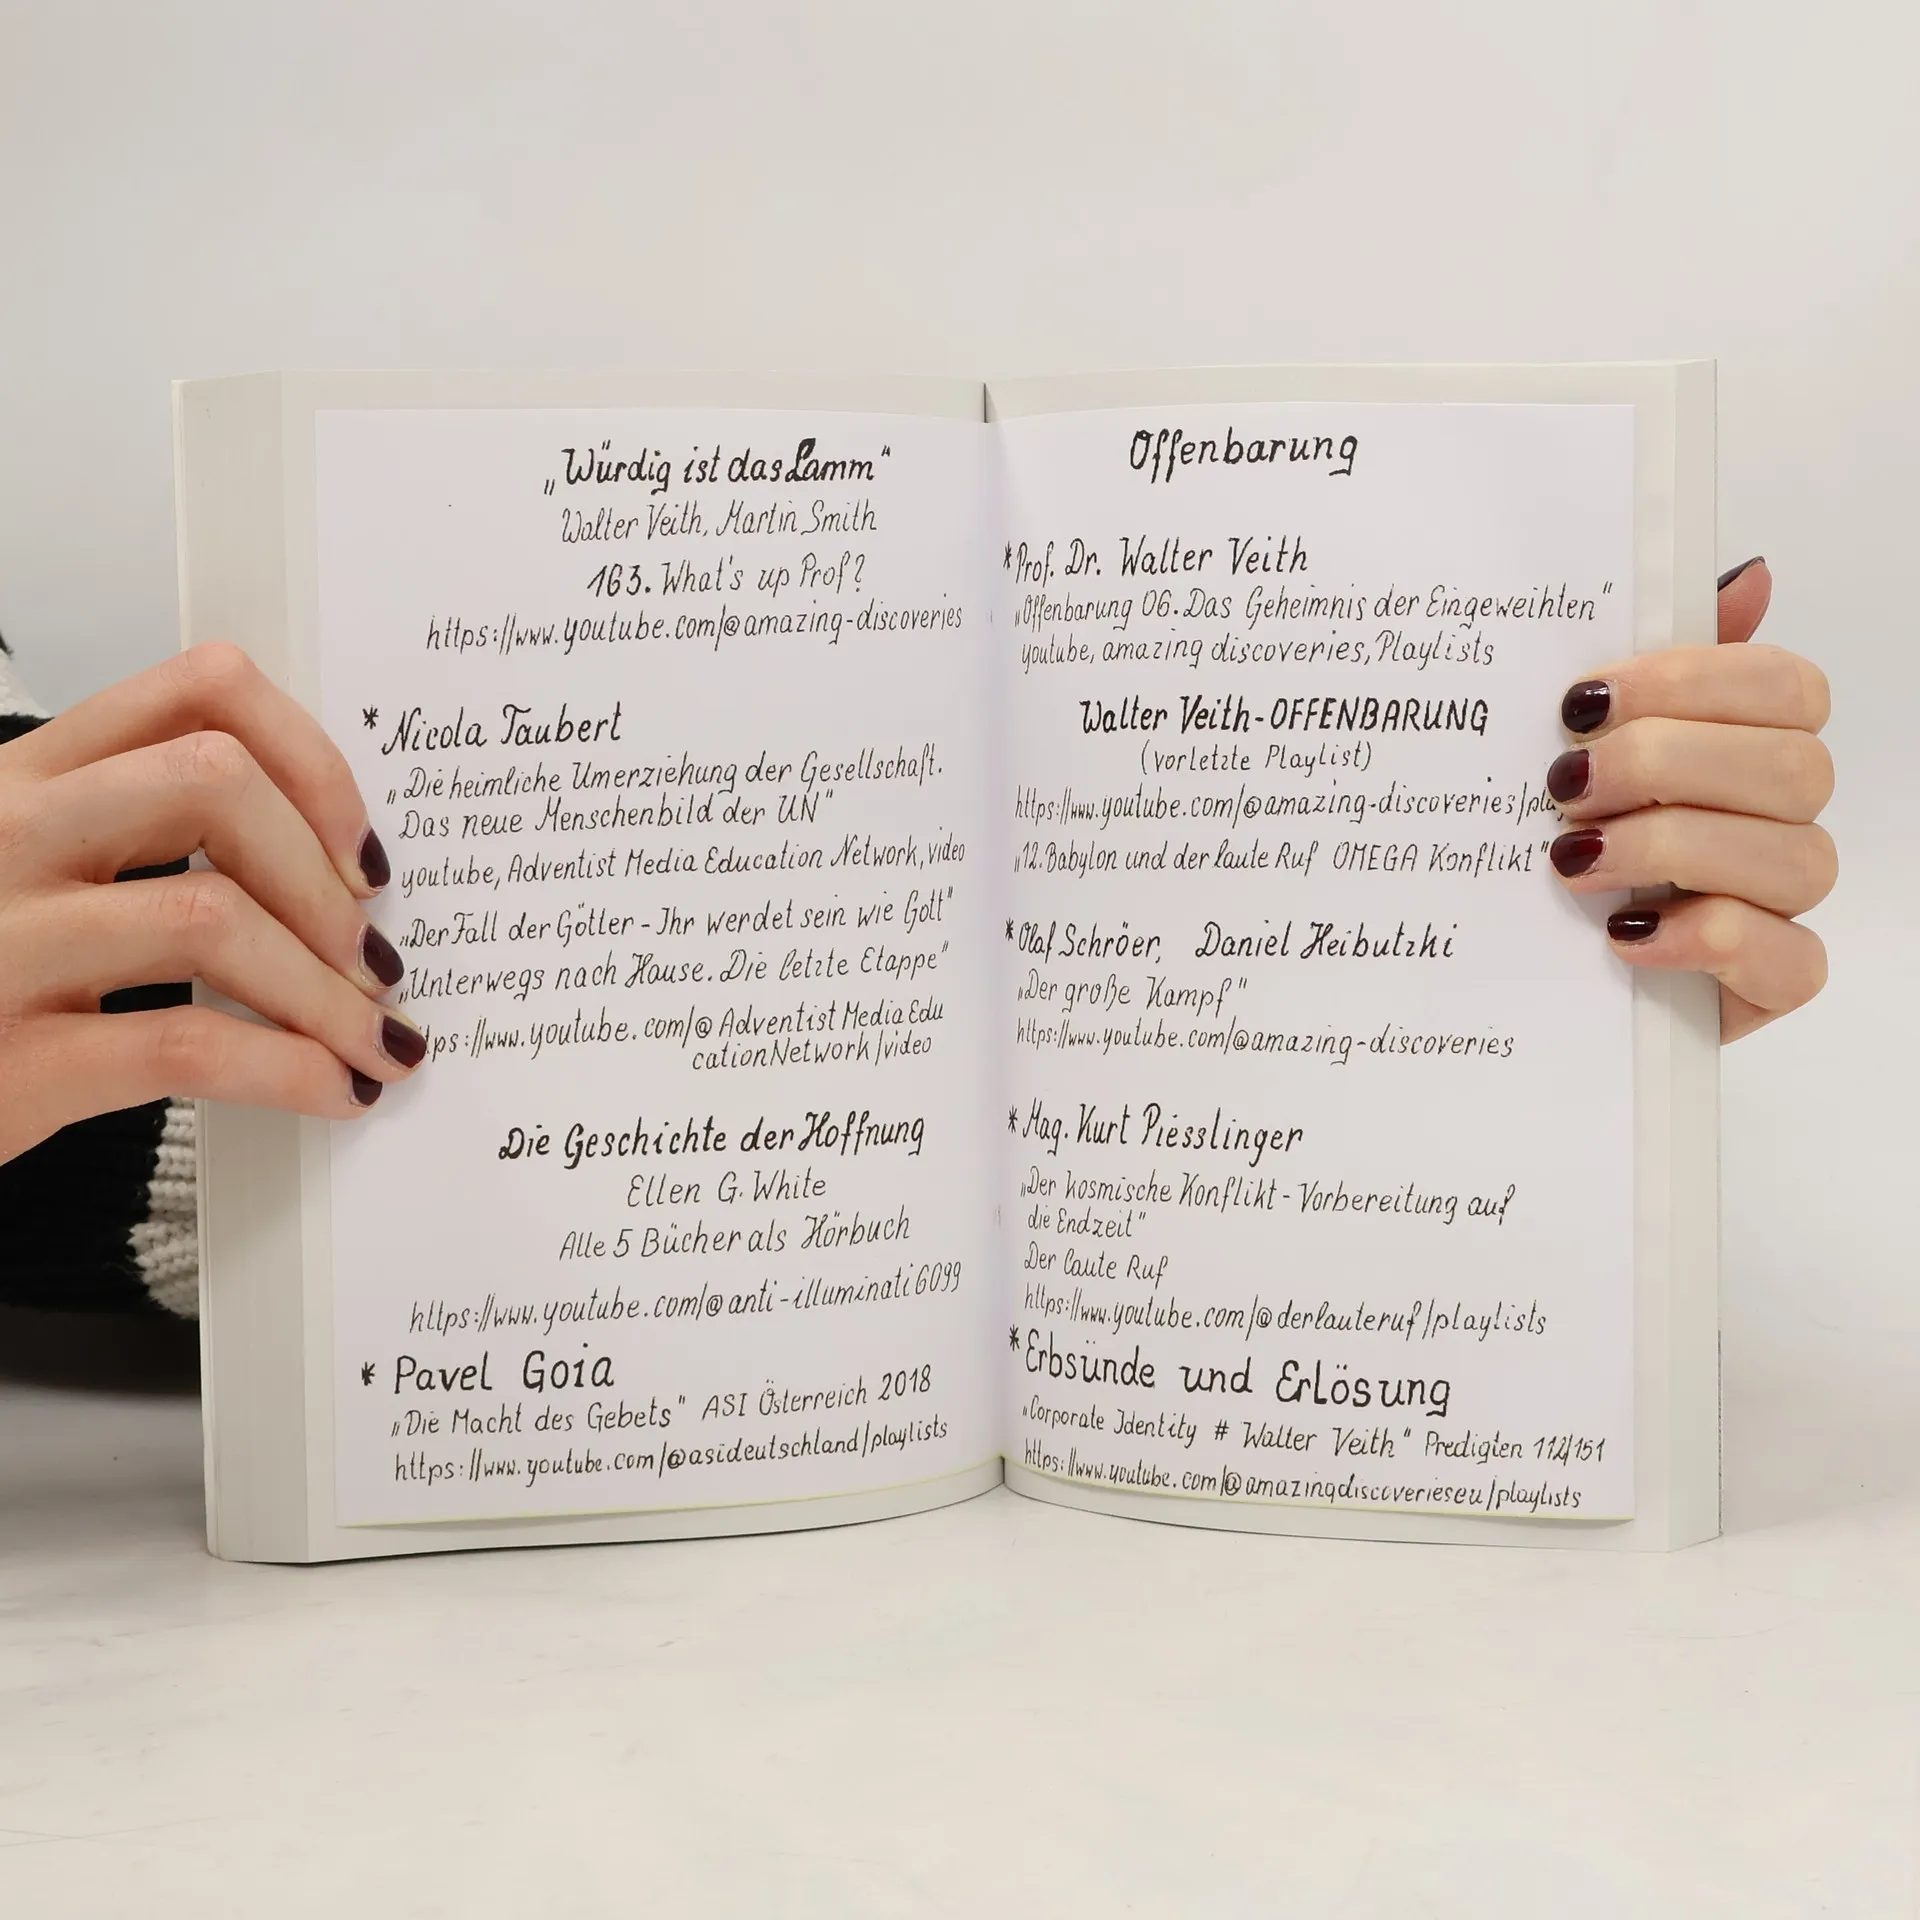 „Würdig ist das Lamm“
Walter Veith, Martin Smith
163. What's up Prof?
https://www.youtube.com/@amazing-discoveries
* Nicola Taubert
„Die heimliche Umerziehung der Gesellschaft.
Das neue Menschenbild der UN“
youtube, Adventist Media Education Network, video
„Der Fall der Götter - Ihr werdet sein wie Gott“
„Unterwegs nach Hause. Die letzte Etappe“
tps://www.youtube.com/@AdventistMediaEdu
cationNetwork/video
Die Geschichte der Hoffnung
Ellen G. White
Alle 5 Bücher als Hörbuch
https://www.youtube.com/@anti-illuminati6099
* Pavel Goia
„Die Macht des Gebets“ ASI Österreich 2018
https://www.youtube.com/@asideutschland/playlists
Offenbarung
* Prof. Dr. Walter Veith
„Offenbarung 06. Das Geheimnis der Eingeweihten“
youtube, amazing discoveries, Playlists
Walter Veith-OFFENBARUNG
(vorletzte Playlist)
https://www.youtube.com/@amazing-discoveries/pla
„12. Babylon und der laute Ruf OMEGA Konflikt“
* Olaf Schröer, Daniel Heibutzki
„Der große Kampf“
https://www.youtube.com/@amazing-discoveries
* Mag. Kurt Piesslinger
„Der kosmische Konflikt - Vorbereitung auf
die Endzeit“
Der laute Ruf
https://www.youtube.com/@derlauteruf/playlists
* Erbsünde und Erlösung
„Corporate Identity # Walter Veith“ Predigten 112/151
https://www.youtube.com/@amazingdiscoverieseu/playlists